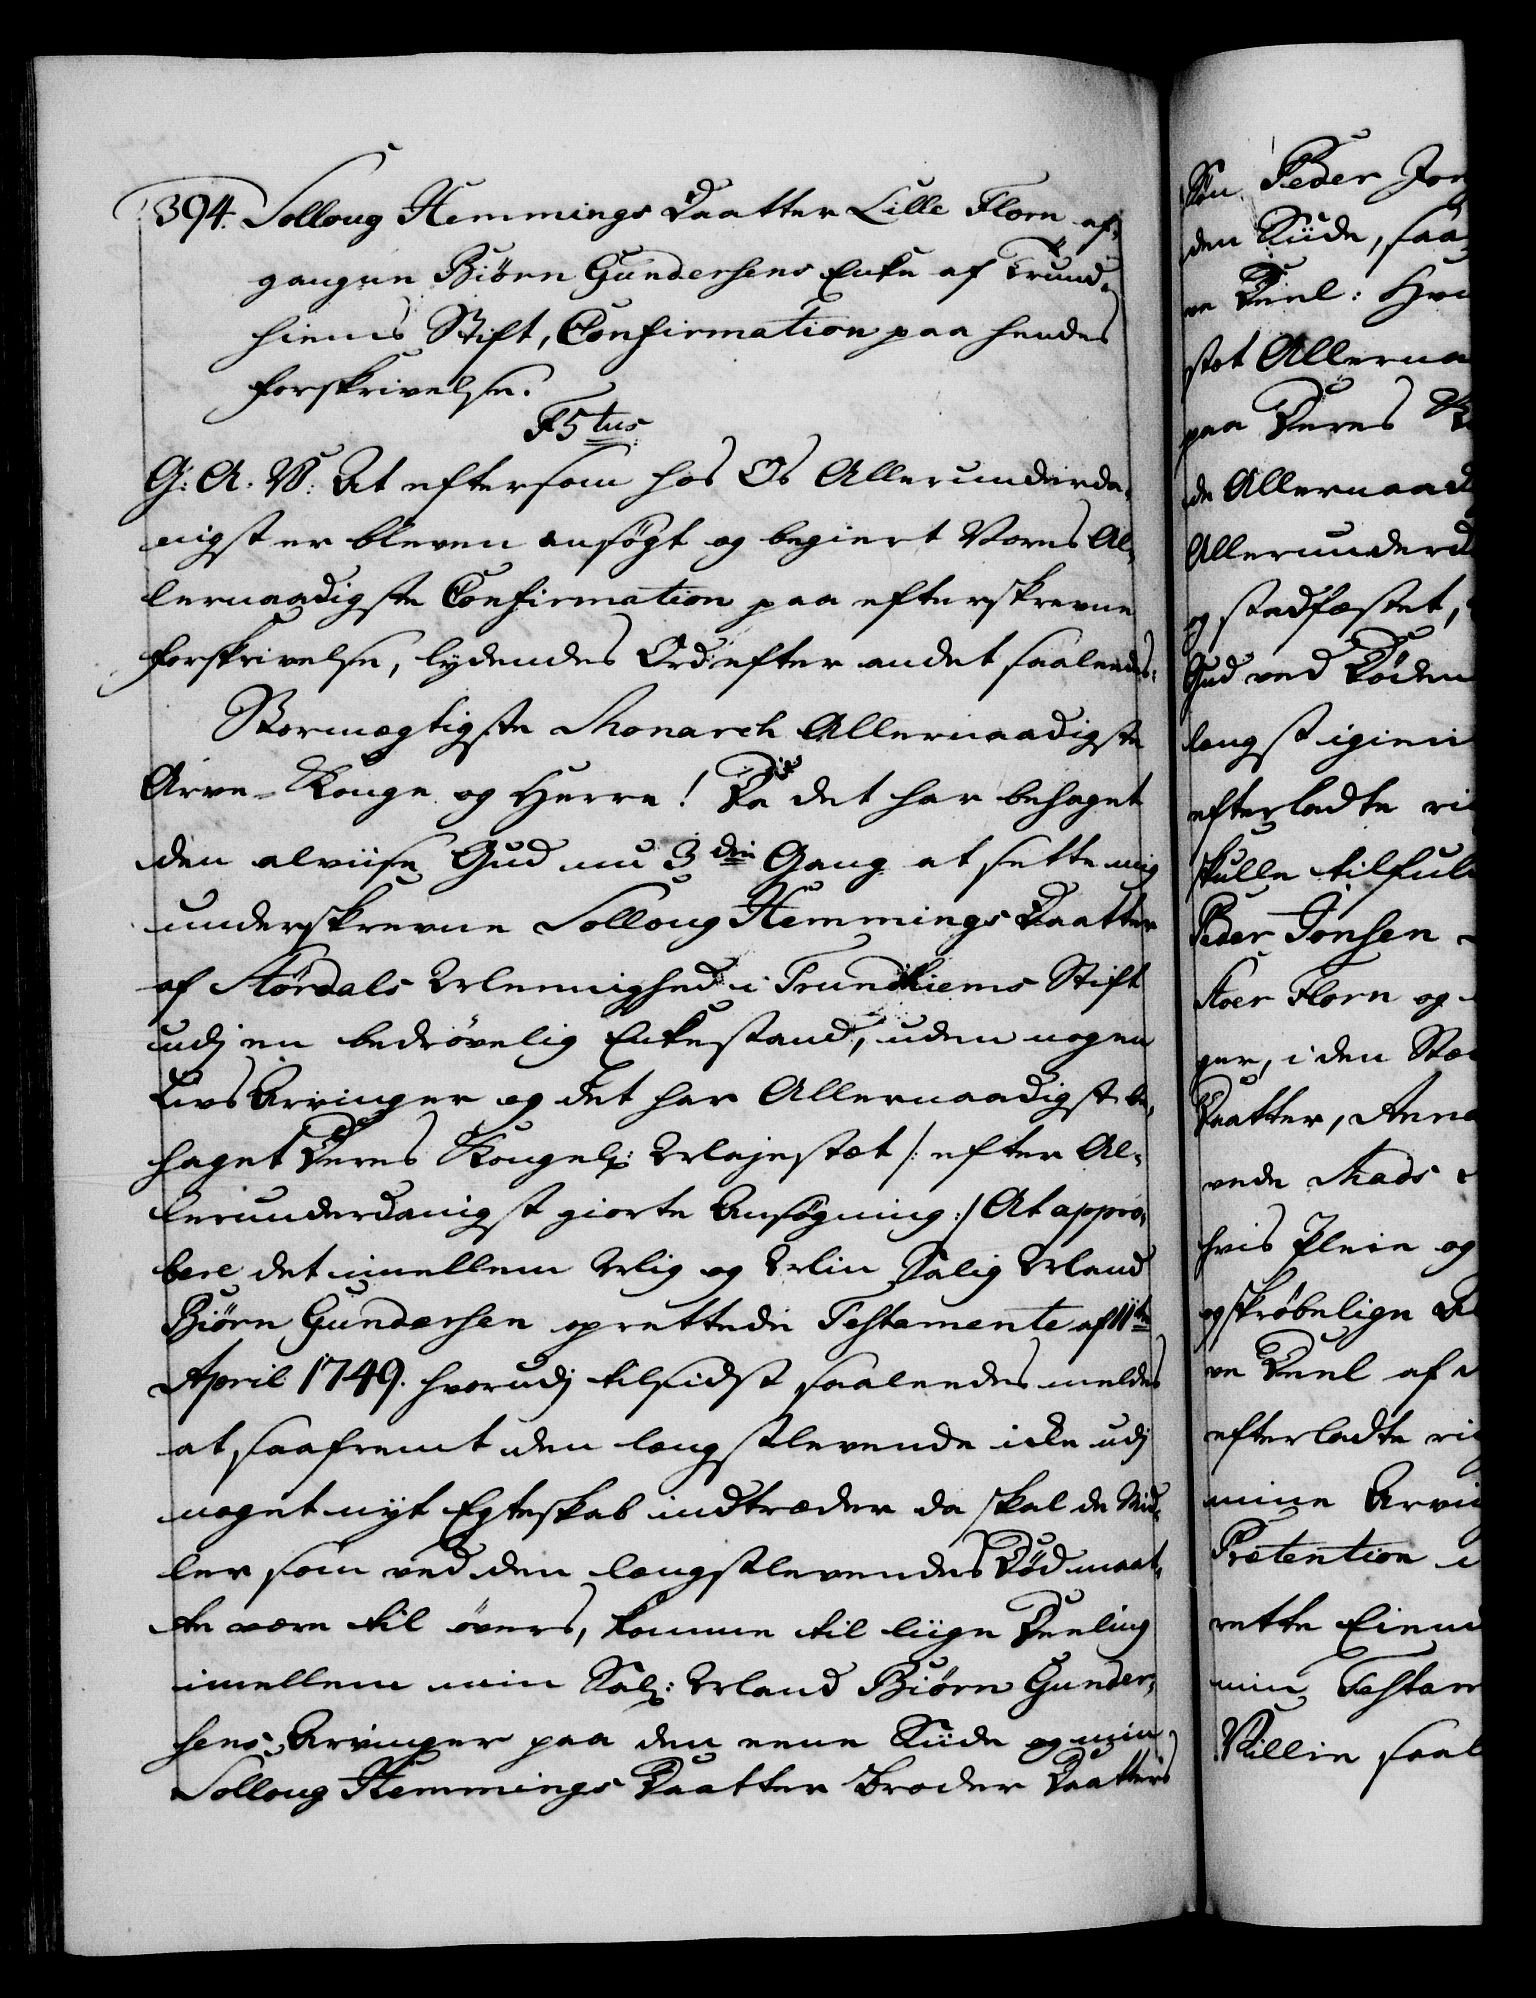 394. Solloug Hemmings Daatter Lille Florn af-
gangne Biørn Gundersens Enke af Trund-
hiems Stift, Confirmation paa hendes
forskrivelse.
F5tus
G: A. V: At eftersom hos Os Allerunderda-
nigst er bleven ansøgt og begiert Vores Al-
lernaadigste Confirmation paa efterskrevne
forskrivelse, lydendes Ord efter andet saaleedes:
Stormægtigste Monarch Allernaadigste
Arve-Konge og Herre! Da det har behaget
den alviise Gud nu 3die Gang at sette mig
underskrevne Solloug Hemmings Daatter
af Størdals Mennighed i Trundhiems Stift
udj en bedrøvelig Enkestand, uden nogen
Livs Arvinger og det har Allernaadigst be-
haget Deres Kongel: Majestæt /: efter Al-
lerunderdanigst giorte Ansøgning :/ At appro-
bere det imellem Mig og Min Salig Mand
Biørn Gundersen oprettede Testamente af 11te
April 1749. hvorudj tilsidst saaleedes meldes
at saafremt den længstlevende icke udj
noget nyt Egteskab indtræder da skal de Mid-
ler som ved den længstlevendes Død maat-
te være til övers, komme til liige Deeling
imellem min Sal: Mand Biørn Gunder-
sens Arvinger paa den eene Siide og min
Solloug Hemmings Daatter Broder Daatters
Søn Peder
den Siide, saa
ve Deel:
stet Allerna
paa Deres
de Allernaad
Allerunderd
og stadfæstet,
Gud ved Døden
længst igien
efterladte
skulle tilful
Peder Jonsen
Stoer Florn og
ger, i den
Daatter, Anne
vede Mads
hvis
og skrøbelige
ve Deel af
efterladte
mine Arvin
Prætention
rette Eiend
min Testam
Villie saal